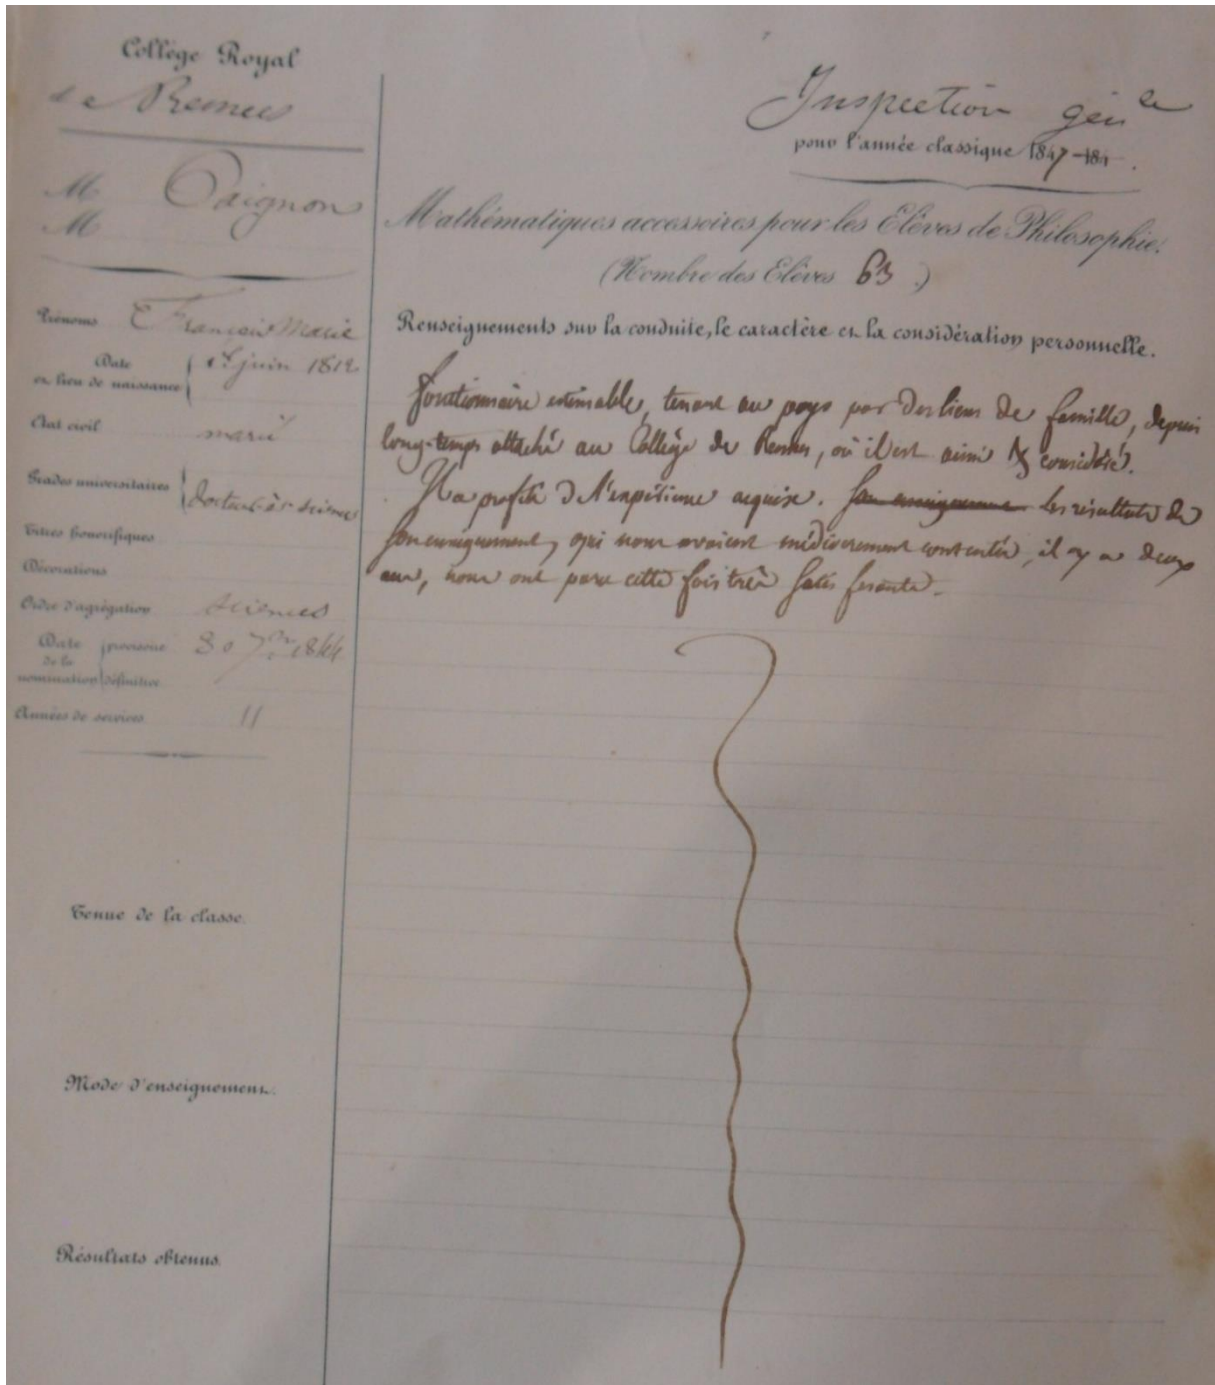 Collège Royal
de Rennes
M Paignon
M
Prénoms François Marie
Date
et lieu de naissance juin 1812
État civil marié
Grades universitaires docteur ès sciences
Titres honorifiques
Décorations
Ordre d'agrégation sciences
Date provisoire 30 7bre 1844
de la
nomination définitive
Années de services 11
Tenue de la classe.
Mode d'enseignement.
Résultats obtenus.
Inspection génle
pour l'année classique 1847-184 .
Mathématiques accessoires pour les Élèves de Philosophie.
(Nombre des Élèves 63 )
Renseignements sur la conduite, le caractère et la considération personnelle.
fonctionnaire estimable, tenant au pays par des liens de famille, depuis
long-temps attaché au Collège de Rennes, où il est aimé & considéré.
Il a profité de l'expérience acquise. Son enseignement les résultats de
son enseignement, qui nous avaient médiocrement contentés, il y a deux
ans, nous ont paru cette fois très satisfesants.